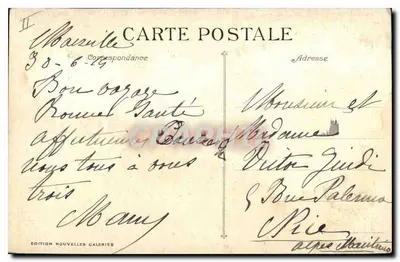 II
CARTE POSTALE
Correspondance
Adresse
Marseille
30-6-14
Bon voyage
Bonne Santé
affectueux Baisers
nous tous à vous
trois
Mary
Monsieur et
Madame
Victor Guidi
5 Rue Palermo
Nice
Alpes Maritimes
EDITION NOUVELLES GALERIES